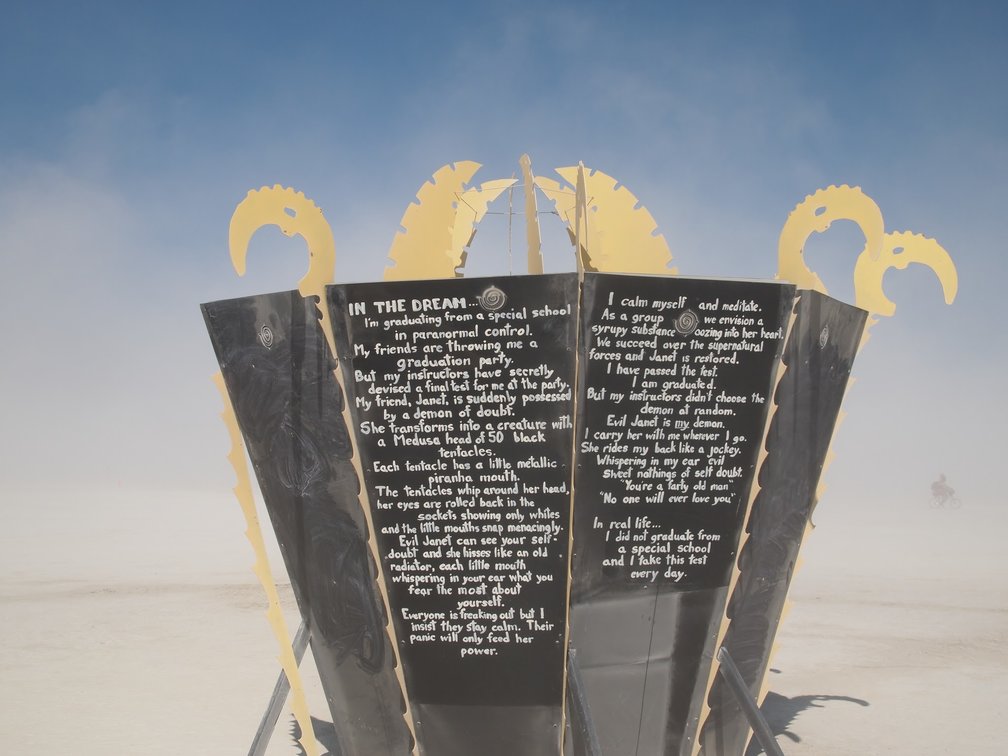 IN THE DREAM...
I'm graduating from a special school
in paranormal control.
My friends are throwing me a
graduation party.
But my instructors have secretly
devised a final test for me at the party.
My friend, Janet, is suddenly possessed
by a demon of doubt.
She transforms into a creature with
a Medusa head of 50 black
tentacles.
Each tentacle has a little metallic
piranha mouth.
The tentacles whip around her head,
her eyes are rolled back in the
sockets showing only whites
and the little mouths snap menacingly.
Evil Janet can see your self-
doubt and she hisses like an old
radiator, each little mouth
whispering in your ear what you
fear the most about
yourself.
Everyone is freaking out but I
insist they stay calm. Their
panic will only feed her
power.
I calm myself and meditate.
As a group we envision a
syrupy substance oozing into her heart.
We succeed over the supernatural
forces and Janet is restored.
I have passed the test.
I am graduated.
But my instructors didn't choose the
demon at random.
Evil Janet is my demon.
I carry her with me wherever I go.
She rides my back like a jockey.
Whispering in my ear evil
sweet nothings of self doubt.
"You're a farty old man"
"No one will ever love you"
In real life...
I did not graduate from
a special school
and I take this test
every day.